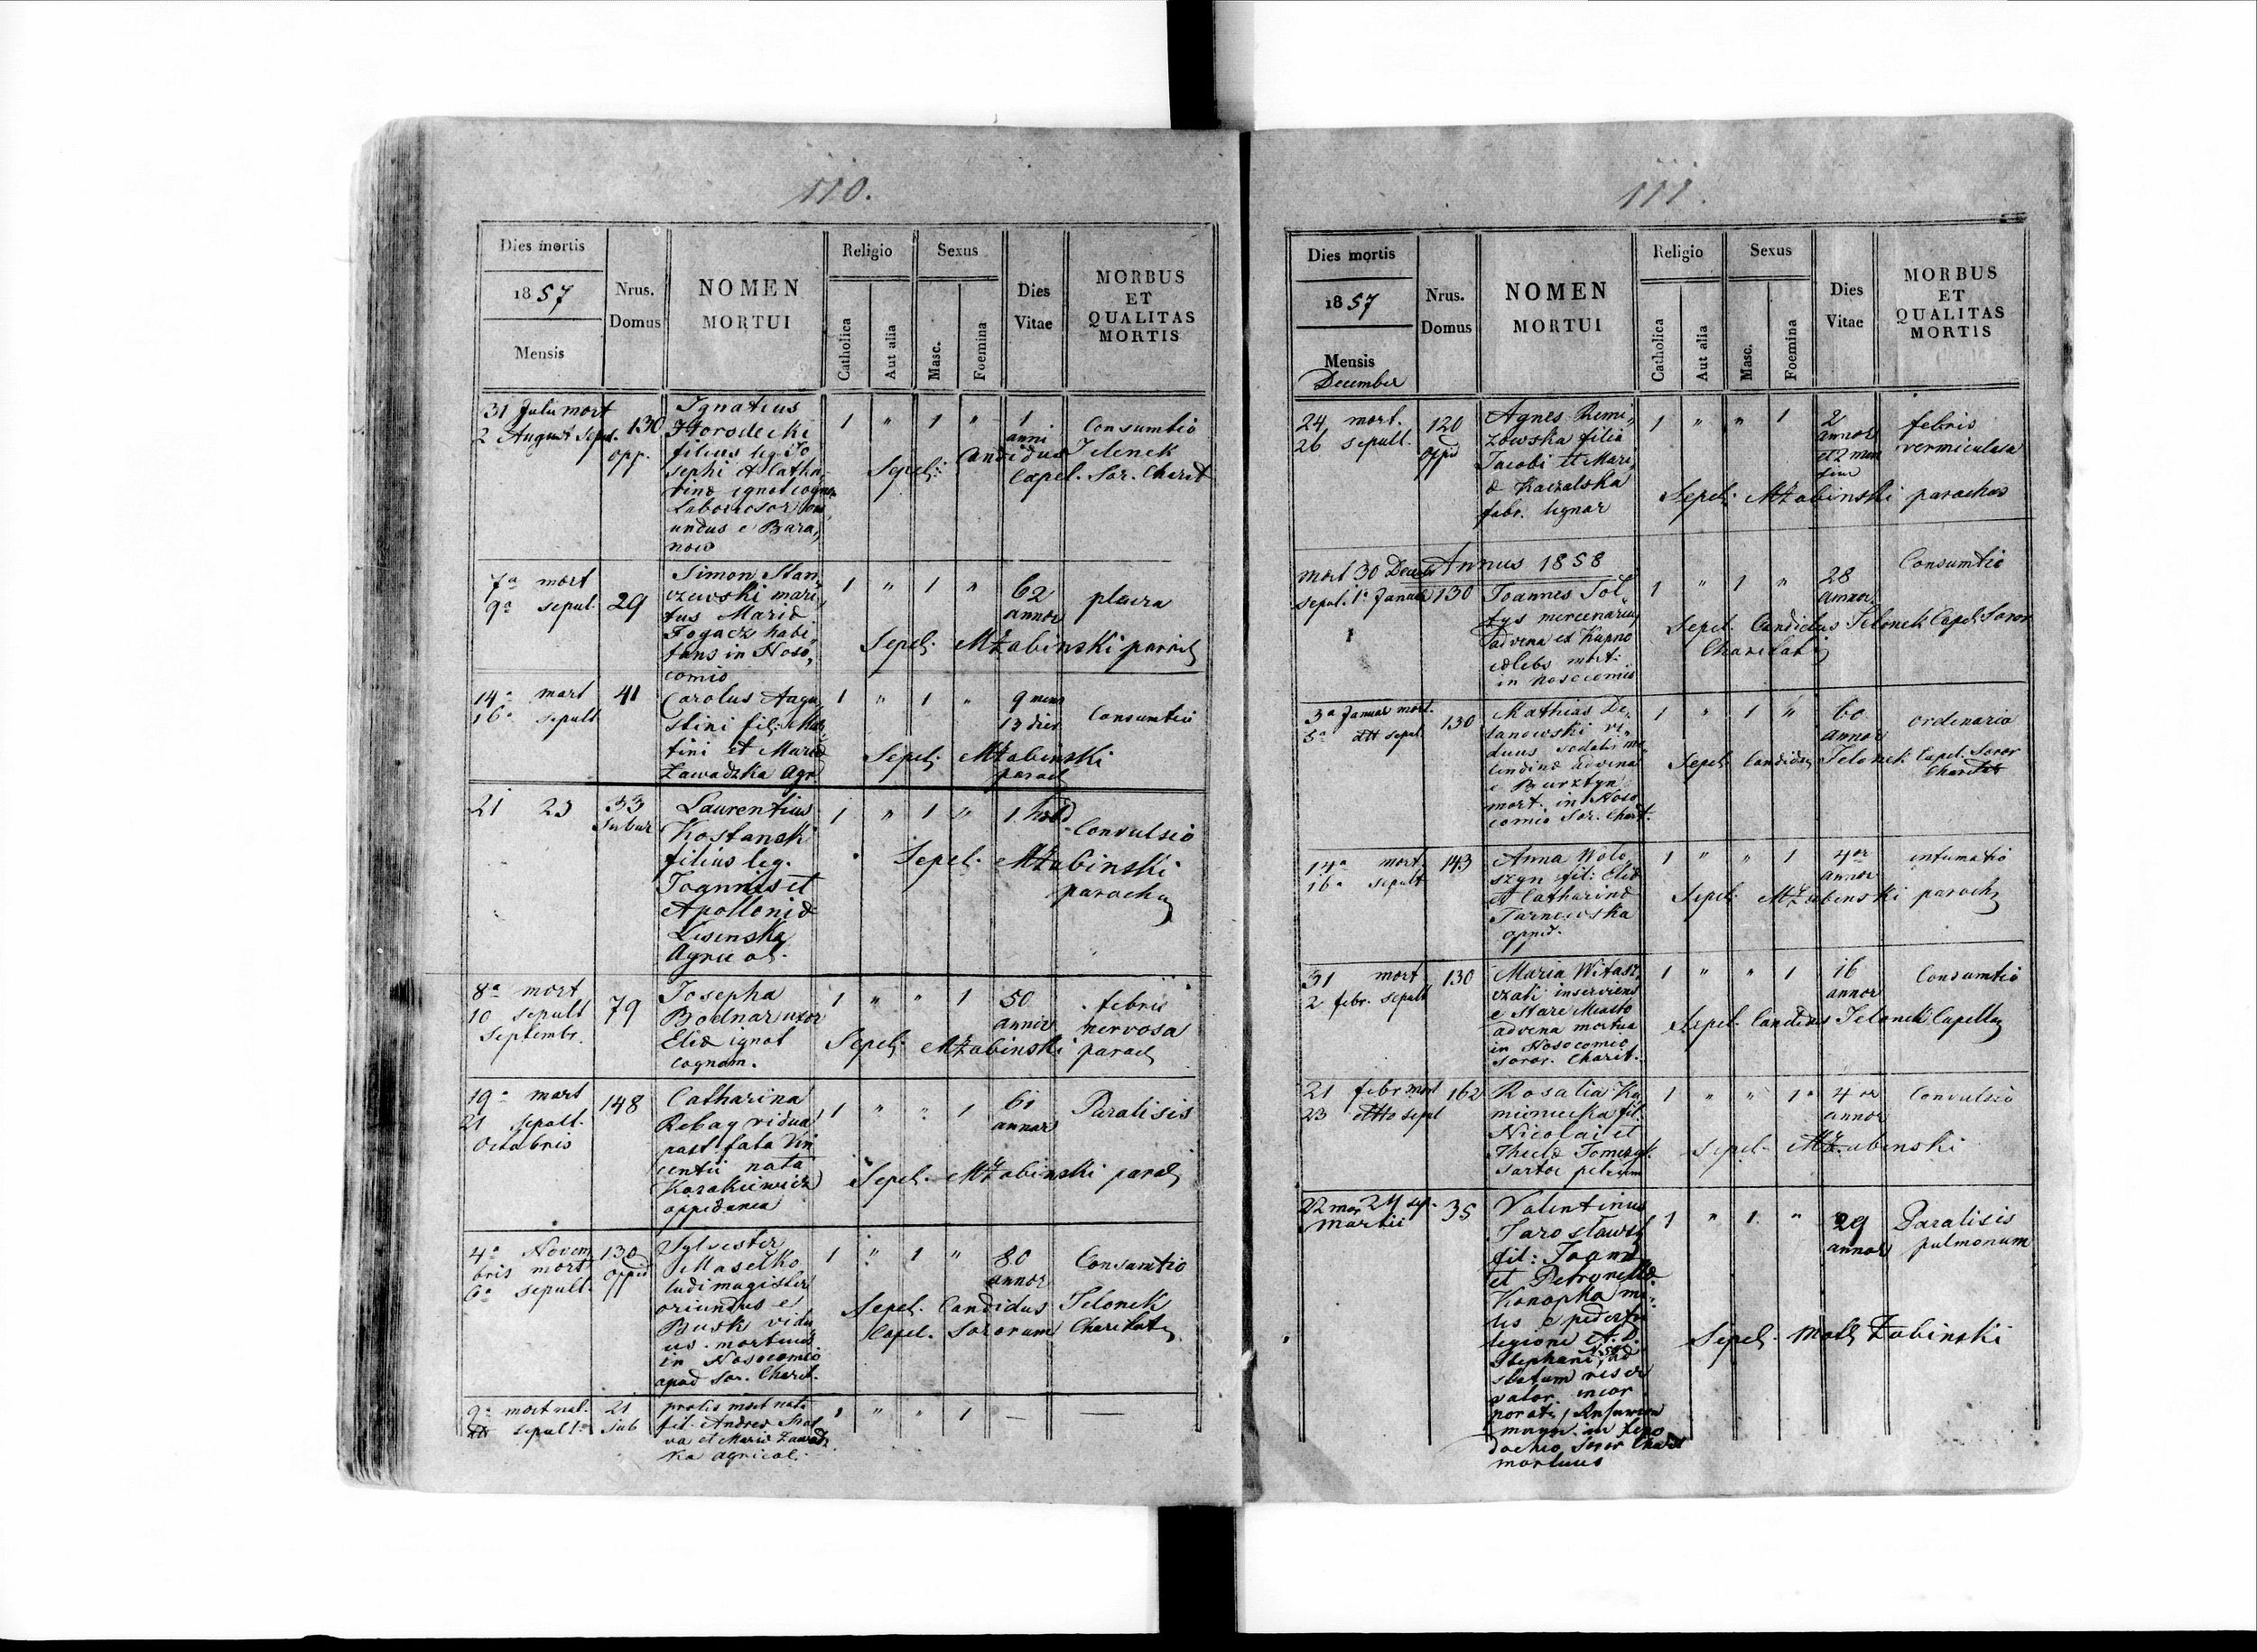 110.
Dies mortis
1857
Mensis
Nrus.
Domus
NOMEN
MORTUI
Religio
Catholica
Aut alia
Sexus
Masc.
Foemina
Dies
Vitae
MORBUS
ET
QUALITAS
MORTIS
31 Julii mort
2 August sepul.
130
opp.
Ignatius
Horodecki
filius leg: Jo
sephi et Catha,
rinæ ignot cogno
Laboriosor ori
undus e Bara,
now
1 " 1 "
1
anni
Consumtio
Sepel: Candidus Jelenek
Capel. Sor. Charit
7a mort
9a sepul.
29
Simon Stan,
czewski mari,
tus Mariæ
Fogacz habi,
tans in Noso,
comio
1 " 1 "
62
annor
pleura
Sepel: MŻabinski paroch
14a mort
16a sepult
41
Carolus Augu
stini fil: Mar
tini et Mariæ
Zawadzka Agr
1 " 1 "
9 mens
13 dier
Consumtio
Sepel: MŻabinski
paroch
21 23
33
Subur
Laurentius
Kostanski
filius leg.
Joannis et
Apolloniæ
Lisinska
Agricol.
1 " 1 "
1 hebd
Convulsio
Sepel. MŻabinski
parochus
8a mort
10 sepult
Septembr.
79
Josepha
Bodnar uxor
Eliæ ignot
cognom.
1 " " 1
50
annor
febris
nervosa
Sepel: MŻabinski paroch
19a mort
21 sepult.
Octobris
148
Catharina
Rebag vidua
post fata Vin
centii nata
Korakiewicz
oppidanea
1 " " 1
61
annor
Paralisis
Sepel. MŻabinski paroch
4a Novem
bris mort
6a sepult.
130
oppid
Sylvester
Masełko
ludimagister
oriundus e
Busk vidu
us. mortuus
in Nosocomio
apud Sor. Charit.
1 " 1 "
80
annor
Consumtio
Sepel. Candidus Jelonek
Capel. Sororum Charitatis
9a mort nat.
dtt sepult.
21
sub
prolis mort nata
fil. Andreæ
va et Mariæ Zawadz
ka agricol.
1 " " 1 — —
111.
Dies mortis
1857
Mensis
December
Nrus.
Domus
NOMEN
MORTUI
Religio
Catholica
Aut alia
Sexus
Masc.
Foemina
Dies
Vitae
MORBUS
ET
QUALITAS
MORTIS
24 mort.
26 sepult.
120
oppid
Agnes Remi,
zowska filia
Jacobi et Mari,
æ Kaczalska
fabr. lignar
1 " " 1
2
annor
et 2 men
sium
febris
vermiculosa
Sepel: MŻabinski parochus
Annus 1858
mort 30 Decem
sepul. 1a Januar
130
Joannes Soł
tys mercenarius
advena ex Kupno
cœlebs mort:
in nosocomio
1 " 1 "
28
annor.
Consumtio
Sepel. Candidus Jelonek Capel. Soror
Charitatis
3a Januar mort.
5a dtt sepul.
130
Mathias De,
lanowski vi,
duus sodalis mo
lendinæ advena
e Bursztyn
mort. in Noso
comio Sor. Charit.
1 " 1 "
60
annor
ordinaria
Sepel: Candidus Jelonek Capel. Soror
Charitat
14a mort
16a sepult
143
Anna Woło,
szyn fil: Eliæ
et Catharinæ
Tarnowska
oppid.
1 " " 1
4or
annor
intumatio
Sepel: MŻabinski parochus
31 mort
2 febr. sepult
130
Maria Witasz,
czak inserviens
e Stare Miasto
advena mortua
in Nosocomio
soror. Charit.
1 " " 1
16
annor
Consumtio
Sepel. Candidus Jelonek Capellanus
21 febr mort
23 dtto sepul
162
Rosalia Ka,
mieniecka fil:
Nicolai et
Theclæ Tomczyk
sartor pelium
1 " " 1
4or
annor
Convulsio
Sepel. MŻabinski
22 mor 24 sep.
Martii
35
Valentinus
Jarosławski
fil: Joann
et Petronellæ
Konopka mi,
lis e pedestri
legione A. D.
Stephani N 58 ad
statum reser
vator. incor
poratus
in Xeno
dochio Soror Charit
mortuus
1 " 1 "
29
annor
Paralisis
pulmonum
Sepel. Math Żabinski